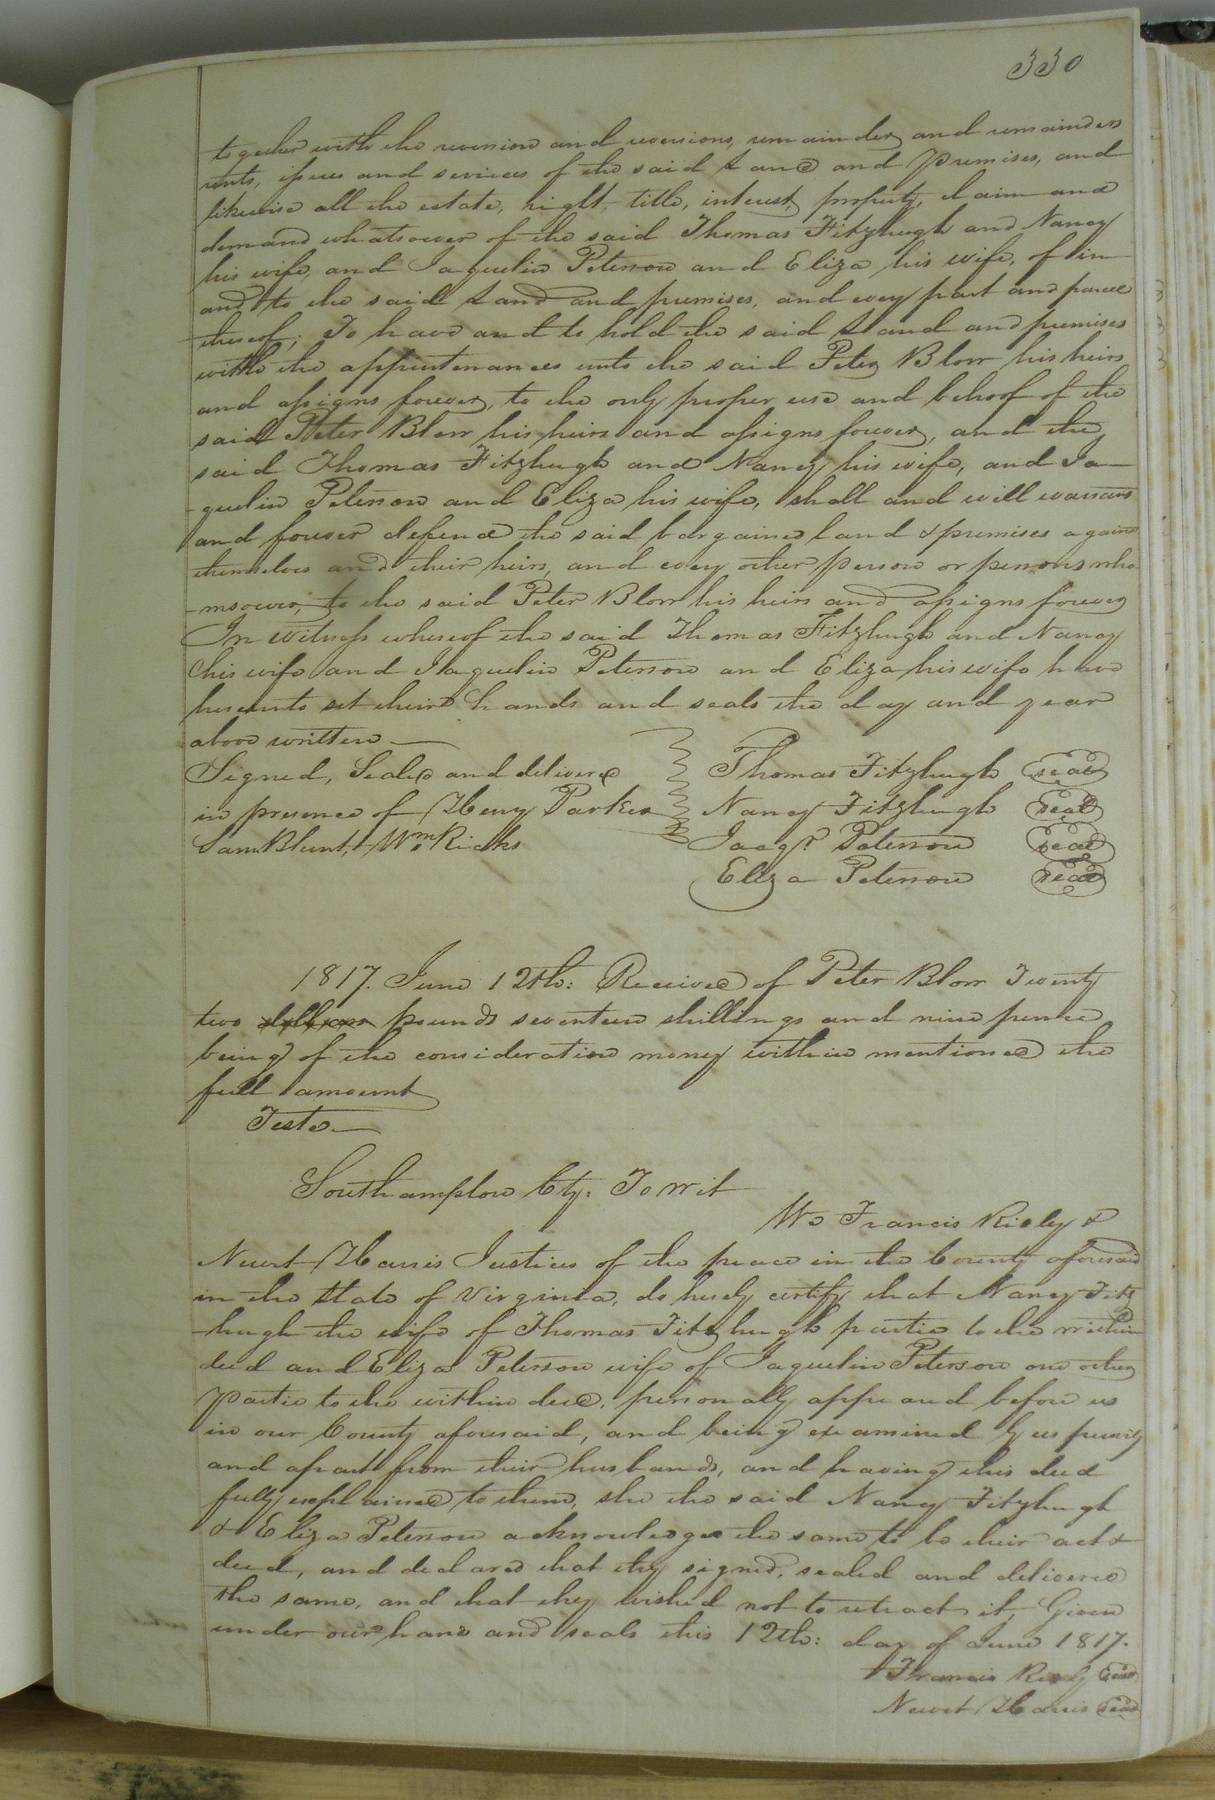 330
together with the reversion and reversions, remainder, and remainders
rents, issues and services of the said Land and Premises, and
likewise all the estate, right, title, interest, property, claim and
demand whatsoever of the said Thomas Fitzhugh and Nancy
his wife, and Jaquelin Peterson and Eliza his wife, of in
and to the said Land and premises, and every part and parcel
thereof; To have and to hold the said Land and premises
with the appurtenances unto the said Peter Blow his heirs
and assigns forever, to the only proper use and behoof of the
said Peter Blow his heirs and assigns forever, and the
said Thomas Fitzhugh and Nancy his wife, and Ja-
quelin Peterson and Eliza his wife, shall and will warrant
and forever defend the said bargained land & premises against
themselves and their heirs, and every other person or persons who
msoever, to the said Peter Blow his heirs and assigns forever
In witness whereof the said Thomas Fitzhugh and Nancy
his wife and Jaquelin Peterson and Eliza his wife have
hereunto set their hands and seals the day and year
above written
Signed, Sealed and delivered Thomas Fitzhugh seal
in presence of Henry Parker Nancy Fitzhugh seal
Sam Blunt, Wm. Ricks Jacqn. Peterson seal
Eliza Peterson seal
1817. June 12th: Received of Peter Blow Twenty
two dollars pounds seventeen shillings and nine pence
being of the consideration money within mentioned the
full amount
Teste
Southampton Cty: To wit
We Francis Ridley &
Newit Harris Justices of the peace in the County aforesaid
in the State of Virginia, do hereby certify that Nancy Fitz
hugh the wife of Thomas Fitzhugh partie to the within
deed and Eliza Peterson wife of Jaquelin Peterson one other
Partie to the within deed, personally appeared before us
in our County aforesaid, and being examined by us privily
and apart from their husbands, and having this deed
fully explained to them, she the said Nancy Fitzhugh
& Eliza Peterson acknowledges the same to be their act &
deed, and declared that they signed, sealed and delivered
the same, and that they wished not to retract it, Given
under our hand and seals this 12th: day of June 1817.
Francis Ridley seal
Newit Harris seal